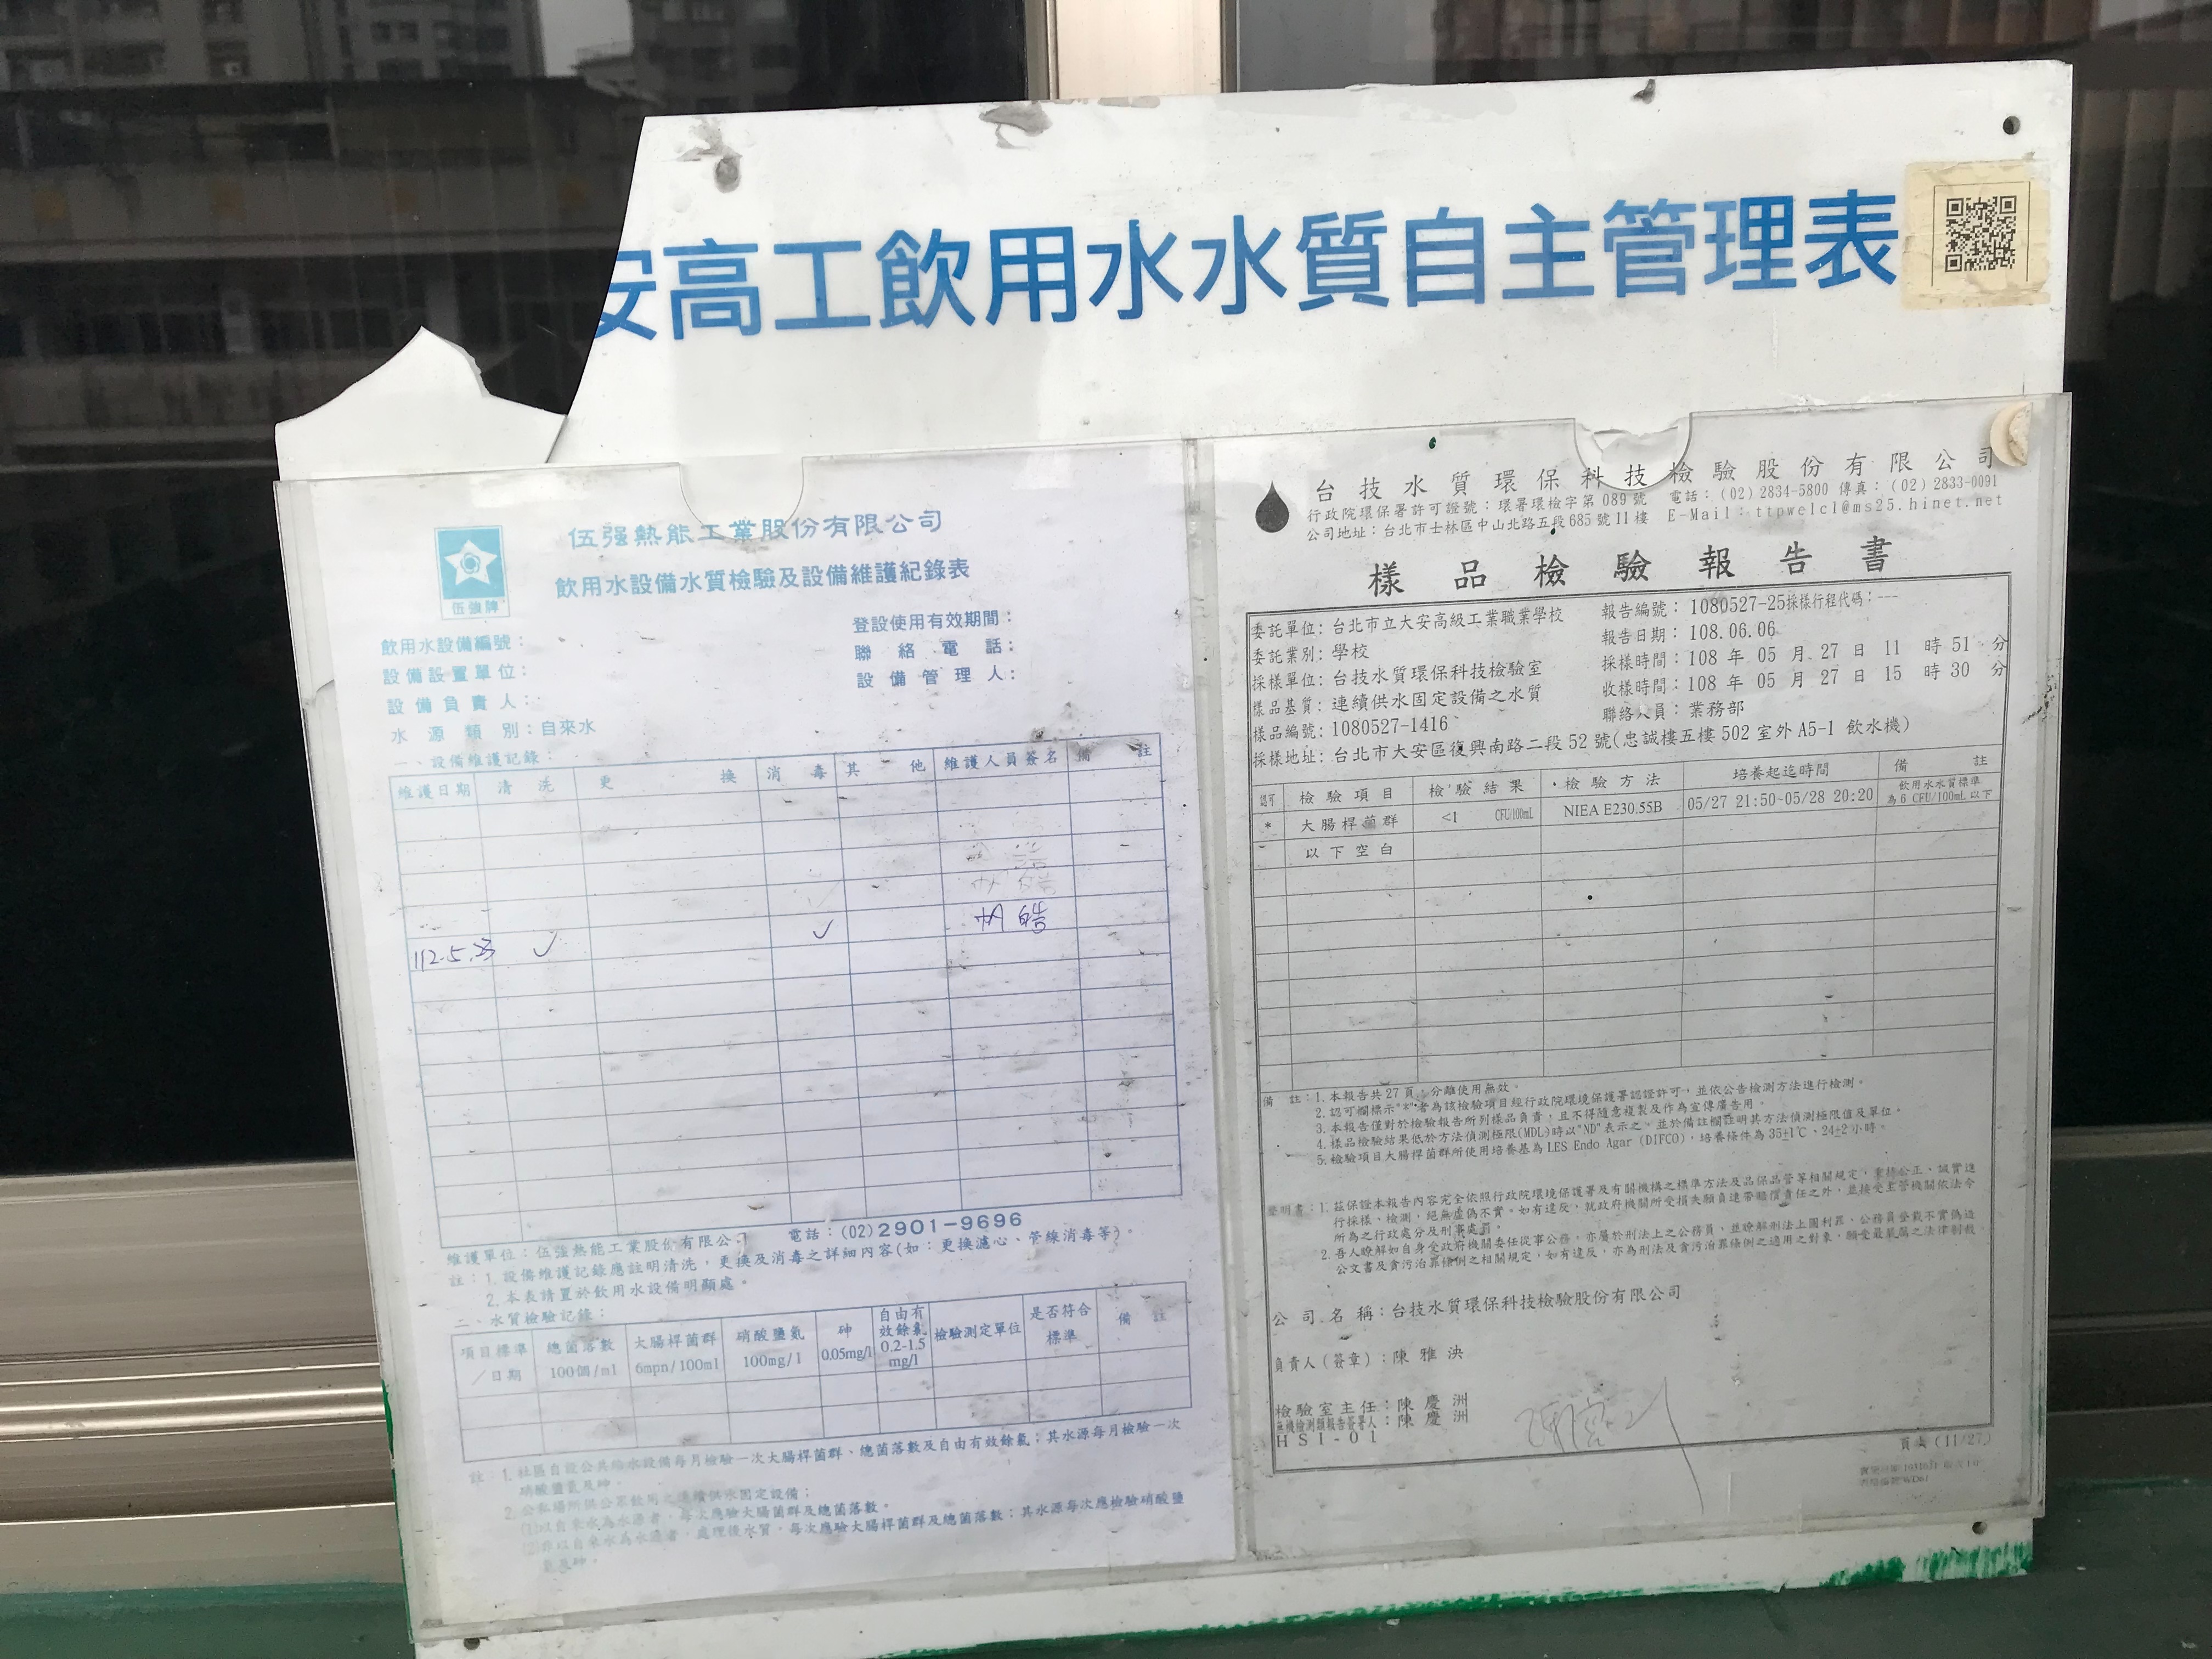 安高工飲用水水質自主管理表
伍强牌
伍强熱能工業股份有限公司
飲用水設備水質檢驗及設備維護紀錄表
飲用水設備編號：
設備設置單位：
設備負責人：
水源類別：自來水
登設使用有效期間：
聯絡電話：
設備管理人：
一、設備維護記錄：
維護日期 清洗 更換 消毒 其他 維護人員簽名 備註
112.5.23 ✓ ✓
維護單位：伍強熱能工業股份有限公司 電話：(02)2901-9696
註：1.設備維護記錄應註明清洗，更換及消毒之詳細內容(如：更換濾心、管線消毒等)。
2.本表請置於飲用水設備明顯處。
二、水質檢驗記錄：
項目標準／日期 總菌落數 100個/ml 大腸桿菌群 6mpn/100ml 硝酸鹽氮 100mg/l 砷 0.05mg/l 自由有效餘氯 0.2-1.5 mg/l 檢驗測定單位 是否符合標準 備註
註：1.社區自設公共給水設備每月檢驗一次大腸桿菌群、總菌落數及自由有效餘氯；其水源每月檢驗一次
硝酸鹽氮及砷。
2.公私場所供公眾飲用之連續供水固定設備：
(1)以自來水為水源者，每次應驗大腸菌群及總菌落數。
(2)非以自來水為水源者，處理後水質，每次應驗大腸桿菌群及總菌落數；其水源每次應檢驗硝酸鹽
氮及砷。
台技水質環保科技檢驗股份有限公司
行政院環保署許可證號：環署環檢字第089號 電話：(02)2834-5800 傳真：(02)2833-0091
公司地址：台北市士林區中山北路五段685號11樓 E-Mail：ttpwelcl@ms25.hinet.net
樣品檢驗報告書
委託單位：台北市立大安高級工業職業學校 報告編號：1080527-25採樣行程代碼：---
委託業別：學校 報告日期：108.06.06
採樣單位：台技水質環保科技檢驗室 採樣時間：108年05月27日11時51分
樣品基質：連續供水固定設備之水質 收樣時間：108年05月27日15時30分
樣品編號：1080527-1416 聯絡人員：業務部
採樣地址：台北市大安區復興南路二段52號(忠誠樓五樓502室外A5-1飲水機)
認可 檢驗項目 檢驗結果 檢驗方法 培養起迄時間 備註
* 大腸桿菌群 <1 CFU/100mL NIEA E230.55B 05/27 21:50~05/28 20:20 飲用水水質標準為6 CFU/100mL以下
以下空白
備註：1.本報告共27頁，分離使用無效。
2.認可欄標示"*"者為該檢驗項目經行政院環境保護署認證許可，並依公告檢測方法進行檢測。
3.本報告僅對於檢驗報告所列樣品負責，且不得隨意複製及作為宣傳廣告用。
4.樣品檢驗結果低於方法偵測極限(MDL)時以"ND"表示之。並於備註欄註明其方法偵測極限值及單位。
5.檢驗項目大腸桿菌群所使用培養基為LES Endo Agar (DIFCO)，培養條件為35±1℃、24±2小時。
聲明書：1.茲保證本報告內容完全依照行政院環境保護署及有關機構之標準方法及品保品管等相關規定，秉持公正、誠實進
行採樣、檢測，絕無虛偽不實。如有違反，就政府機關所受損失願負連帶賠償責任之外，並接受主管機關依法令
所為之行政處分及刑事處罰。
2.吾人瞭解如自身受政府機關委任從事公務，亦屬於刑法上之公務員，並瞭解刑法上圖利罪、公務員登載不實偽造
公文書及貪污治罪條例之相關規定，如有違反，亦為刑法及貪污治罪條例之適用之對象，願受最嚴厲之法律制裁。
公司名稱：台技水質環保科技檢驗股份有限公司
負責人(簽章)：陳雅泱
檢驗室主任：陳慶洲
無機檢測類報告簽署人：陳慶洲
HSI-01
頁次(11/27)